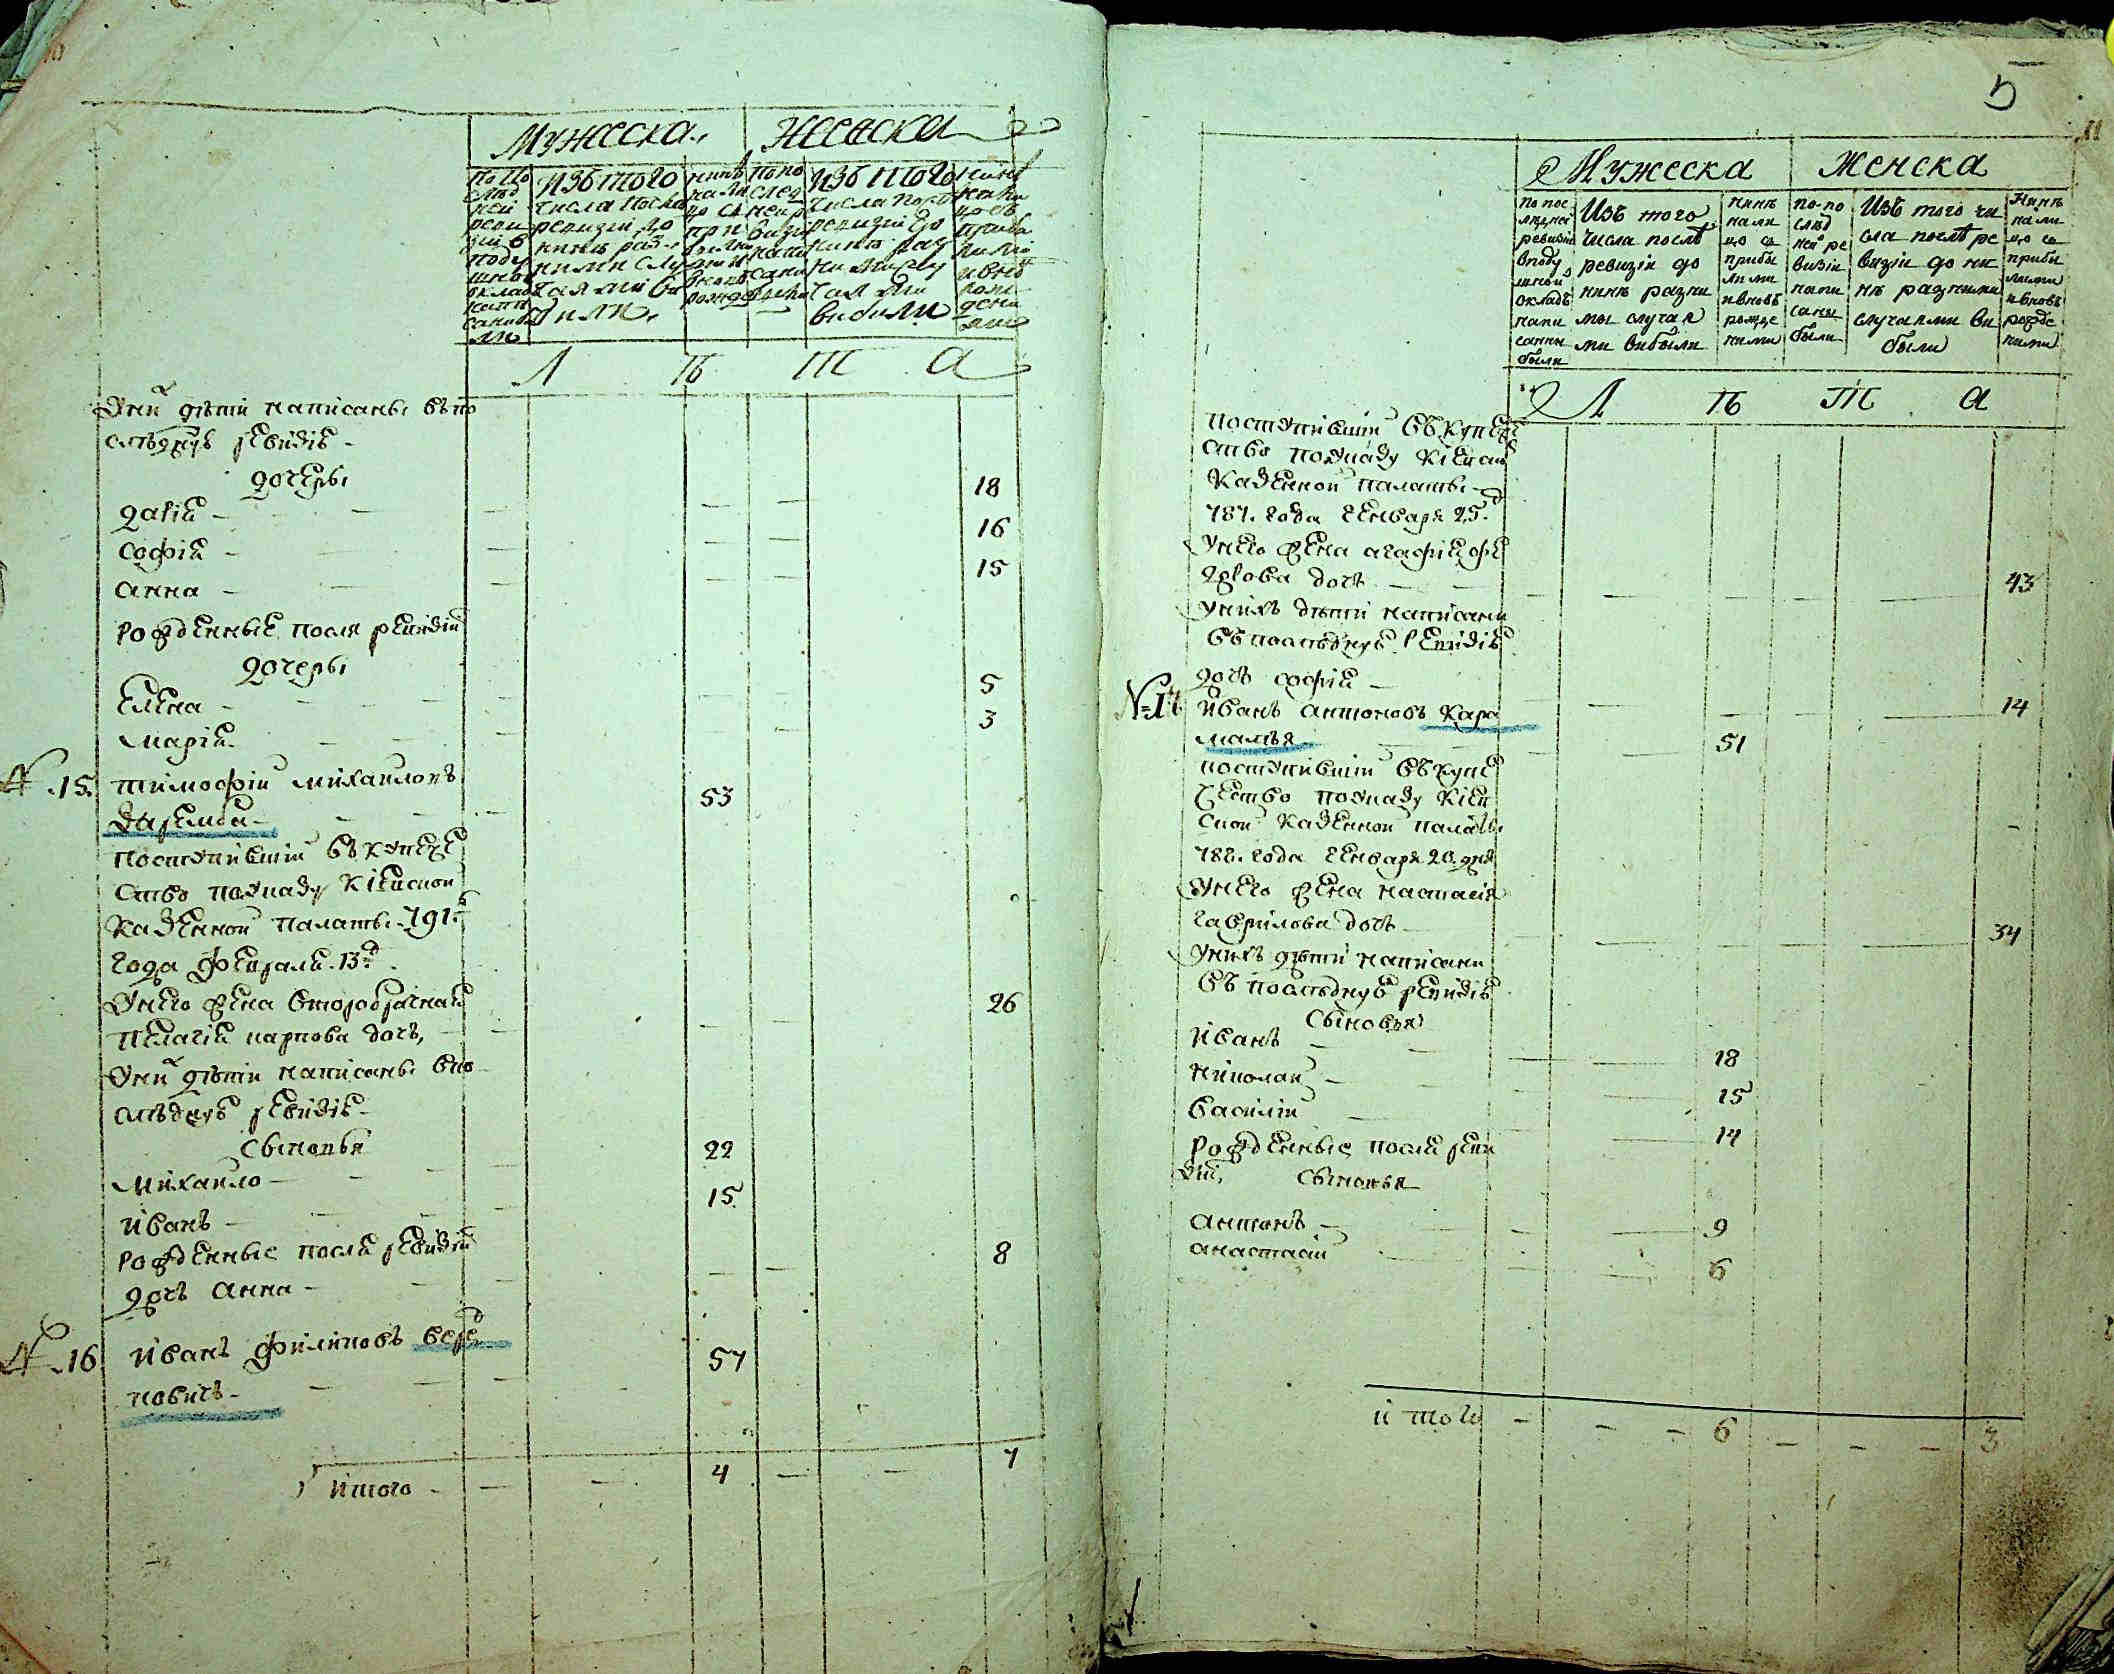 Мужеска. Женска
По по
слѣд
ней
реви
зіи в
поду
шно
оклад
напи
сани бы
ли
Изъ того
числа послѣ
ревизіи до
нинѣ раз-
ними слу
чаями вы
били,
Изъ того
ревизіи до
нинѣ раз
чая ми
выбили
Л Т А
У них дѣти написаны въ по
слѣднуѣ ревизіѣ -
дочеры
дарія - 18
софія - 16
анна - 15
рожденные после ревизіи
дочеры
Елена - 5
Марія - 3
№. 15. тимофій михайловъ
53
поступившій въ купече
ство по указу Кіевской
казенной палаты 791.
года февраля 13.
у него жена второбрачная
пелагія карпова дочъ, 26
у них дѣти написаны в по
слѣднуѣ ревизіѣ -
сыновья
михайло - 22
иванъ - 15
рожденные после ревизіи
дочъ анна - 8
№. 16 иванъ филиповъ
новичъ - 57
итого - 4 - 7
5
Мужеска Женска
по пос
лѣдней
ревизіи
в поду
шной
окладъ
напи
санны
были
Изъ того
числа послѣ
ревизіи до
нинѣ разни
мы случая
ми вибыли
нинѣ
нали
цо съ
прибы
лими
и вновь
рожде
ними
по по
слѣд
ней ре
визіи
напи
саны
были
Изъ того чи
сла послѣ ре
визіи до ни
нѣ разними
случаями ви
были
Нинѣ
нали
цо съ
приби
лими
и вновь
рожде
ними
Л Т А
поступившій въ купече
ство по указу Кіевской
казенной палаты
787. года генваря 25.
у него жена агафія фе
дорова дочъ 43
у нихъ дѣти написани
въ послѣднуѣ ревизіѣ
дочъ софія - 14
№ 17 иванъ антоновъ Кара
51
поступившій въ купе
чество по указу Кіев
ской казенной палаты
788. года генваря 20. дня
у него жена настасія
гаврилова дочъ 34
у нихъ дѣти написани
въ послѣднуѣ ревизіѣ
сыновья
иванъ - 18
николай - 15
василій 14
рожденные после реви
зіи, сыновья
антонъ - 9
анастасій 6
итого - - - 6 - - - 3